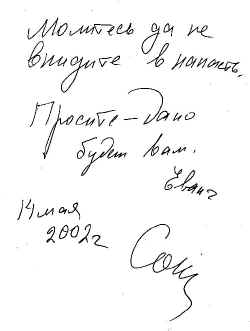 Молитесь да не
внидите в напасть.
Просите – дано
будет вам.
Еванг
14 мая
2002г